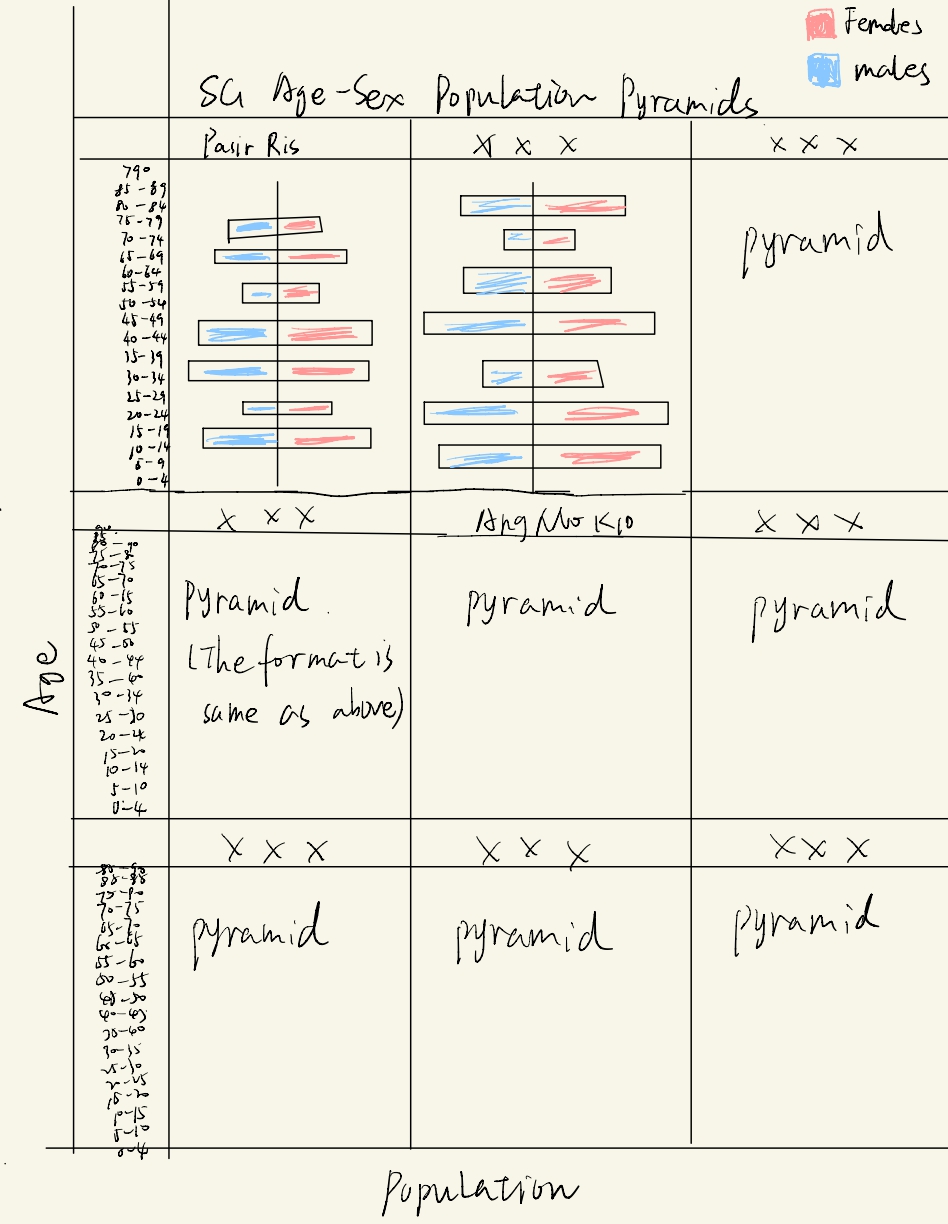 Females
males
SG Age-Sex Population Pyramids
Pasir Ris
X X X
X X X
790
85-89
80-84
75-79
70-74
65-69
60-64
55-59
50-54
45-49
40-44
35-39
30-34
25-29
20-24
15-19
10-14
5-9
0-4
pyramid
X X X
Ang Mo Kio
X X X
75-80
70-75
65-70
60-65
55-60
50-55
45-50
40-44
35-40
30-34
25-30
20-24
15-20
10-14
5-10
0-4
Age
Pyramid.
(The format is
same as above)
pyramid
pyramid
X X X
X X X
X X X
70-75
65-70
60-65
55-60
50-55
40-45
30-40
30-35
25-30
20-25
15-20
10-15
5-10
0-4
pyramid
pyramid
pyramid
Population